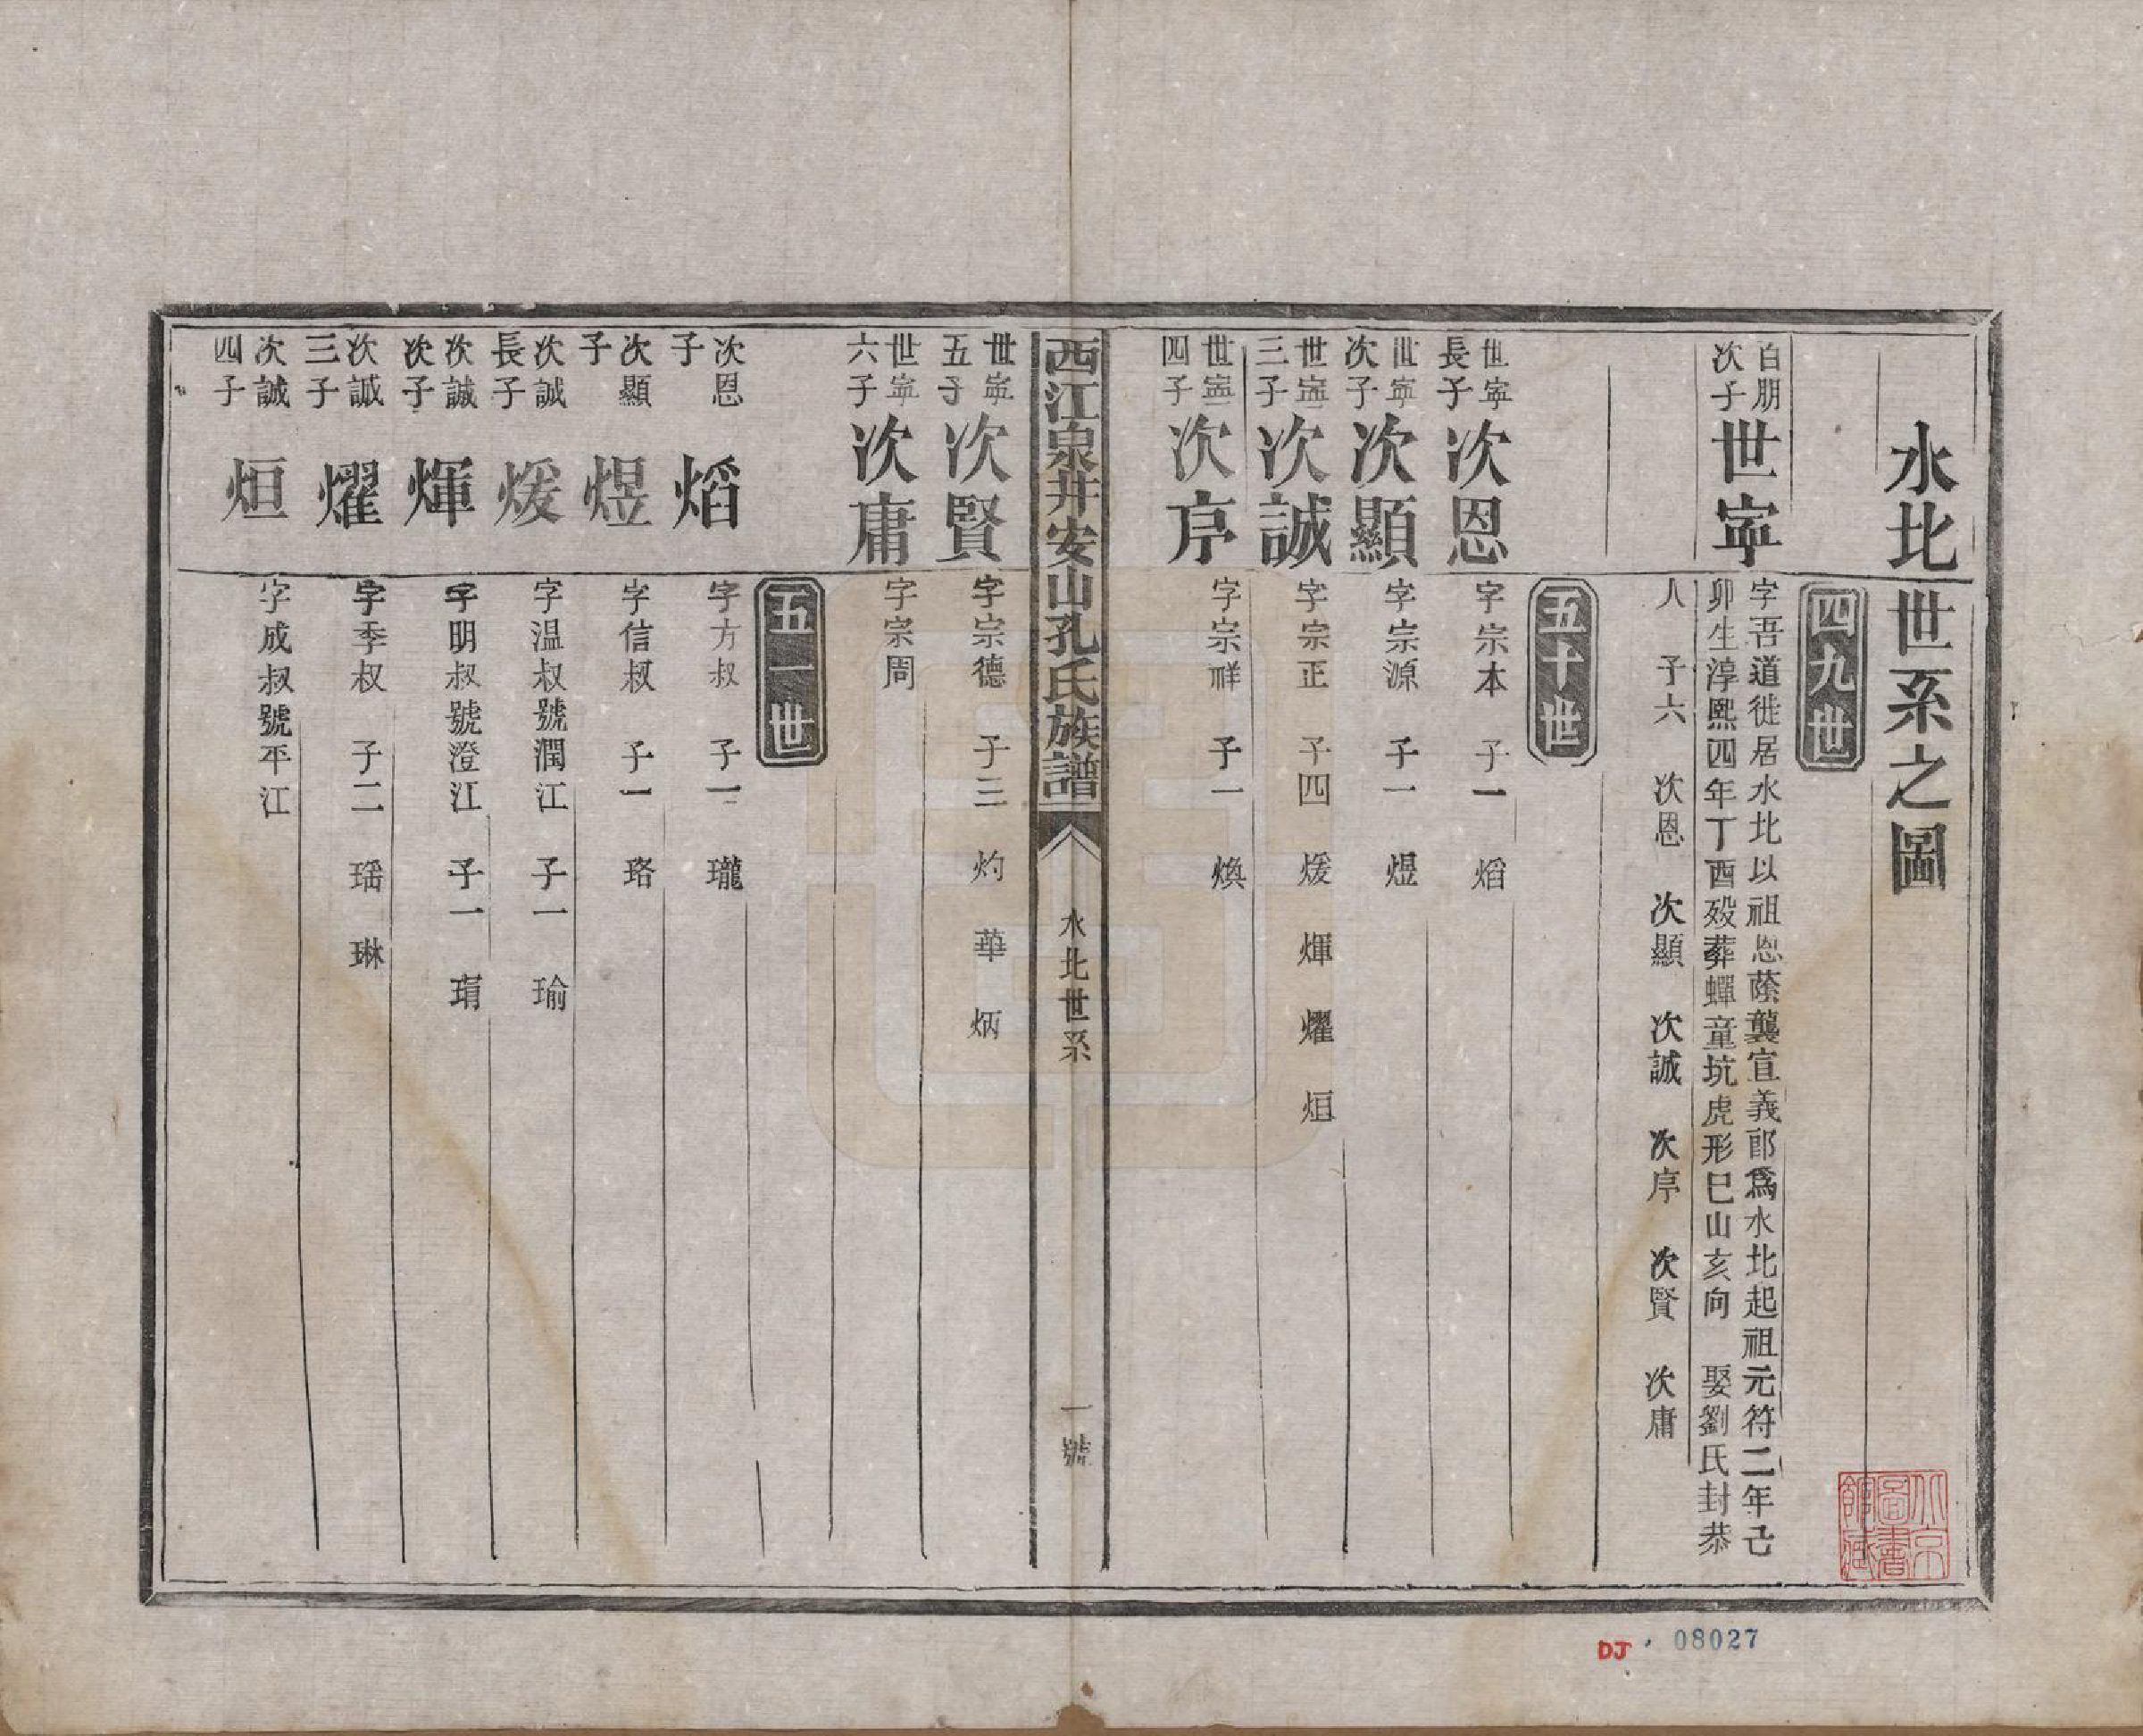 水北世系之圖
四九世
白朋次子 世寧
字吾道徙居水北以祖恩蔭襲宣義郎爲水北起祖元符二年己
卯生淳熙四年丁酉歿葬蟬童坑虎形巳山亥向 娶劉氏封恭
人 子六 次恩 次顯 次誠 次序 次賢 次庸
五十世
世寧長子 次恩 字宗本 子一 熖
世寧次子 次顯 字宗源 子一 煜
世寧三子 次誠 字宗正 子四 煖 煇 燿 烜
世寧四子 次序 字宗祥 子一 煥
西江泉井安山孔氏族譜 水北世系 一號
世寧五子 次賢 字宗德 子三 灼 華 炳
世寧六子 次庸 字宗周
五一世
次恩子 熖 字方叔 子一 瓏
次顯子 煜 字信叔 子一 珞
次誠長子 煖 字温叔號潤江 子一 瑜
次誠次子 煇 字明叔號澄江 子一 琄
次誠三子 燿 字季叔 子二 瑶 琳
次誠四子 烜 字成叔號平江
北京圖書館藏
DJ 08027